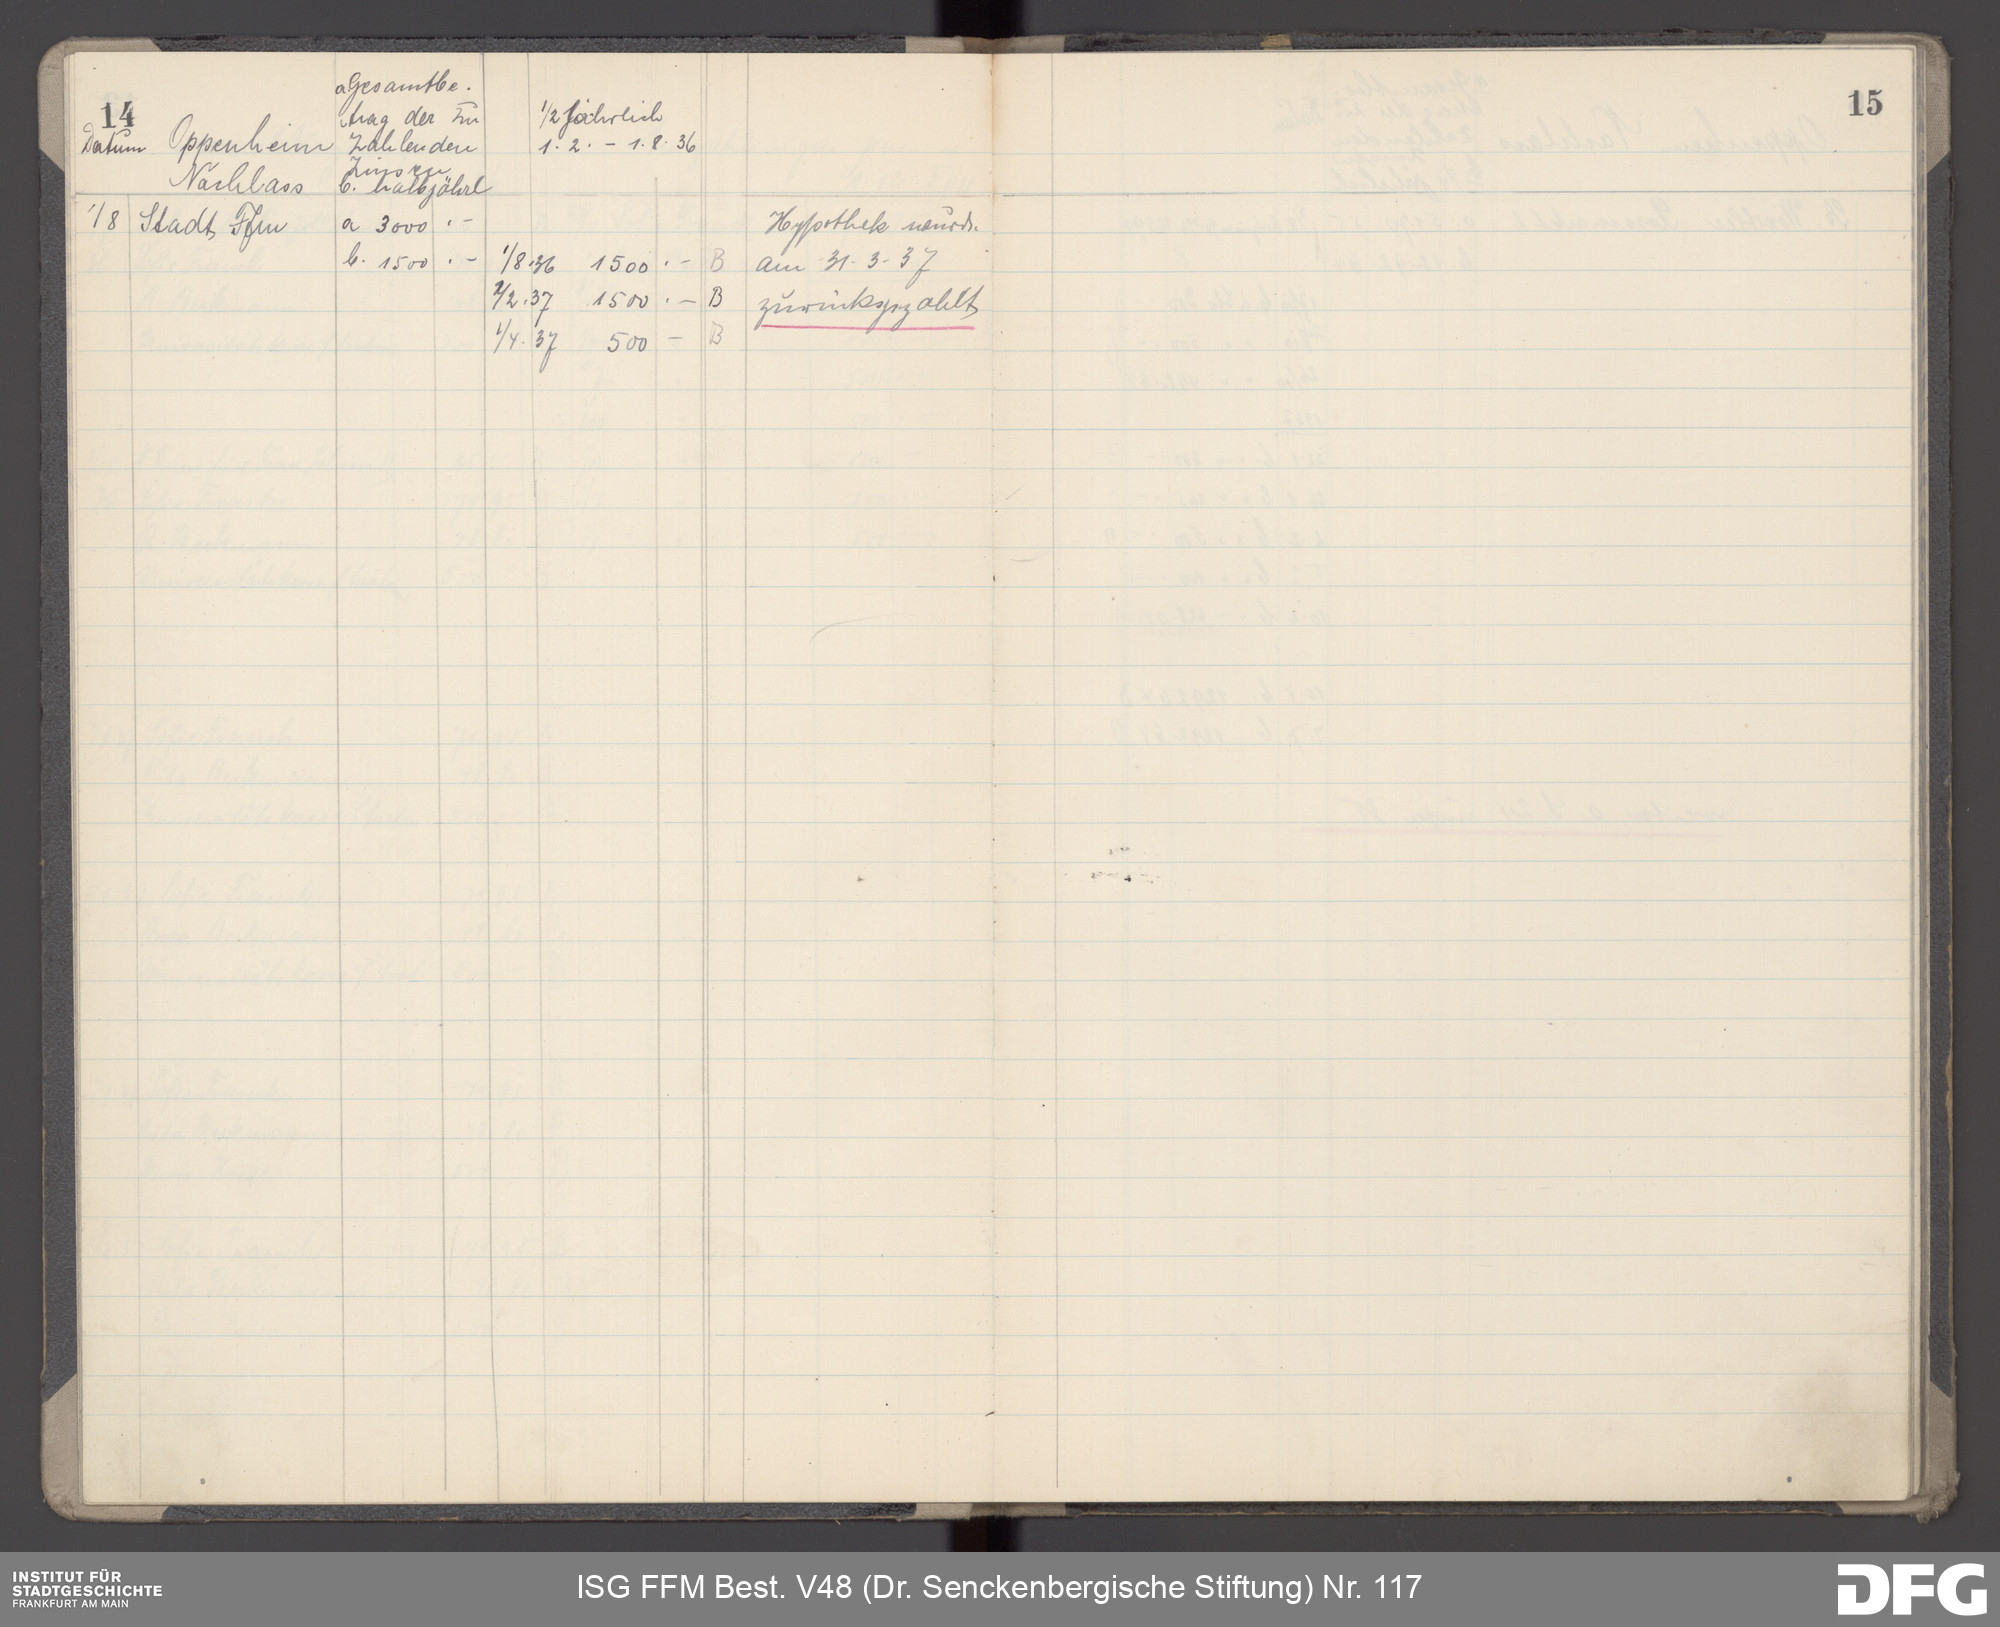 14
15
Datum
Oppenheim
Nachlass
a Gesamtbe.
trag der zu
zahlenden
Zinsen
b. halbjährl
1/2 jährlich
1. 2. – 1. 8. 36
1/8 Stadt Ffm a 3000 . –
b. 1500 . – 1/8.36 1500 . – B
2.37 1500 . – B
1/4. 37 500 – B
Hypothek wurde
am 31. 3. 37
zurückgezahlt
INSTITUT FÜR
STADTGESCHICHTE
FRANKFURT AM MAIN
ISG FFM Best. V48 (Dr. Senckenbergische Stiftung) Nr. 117
DFG